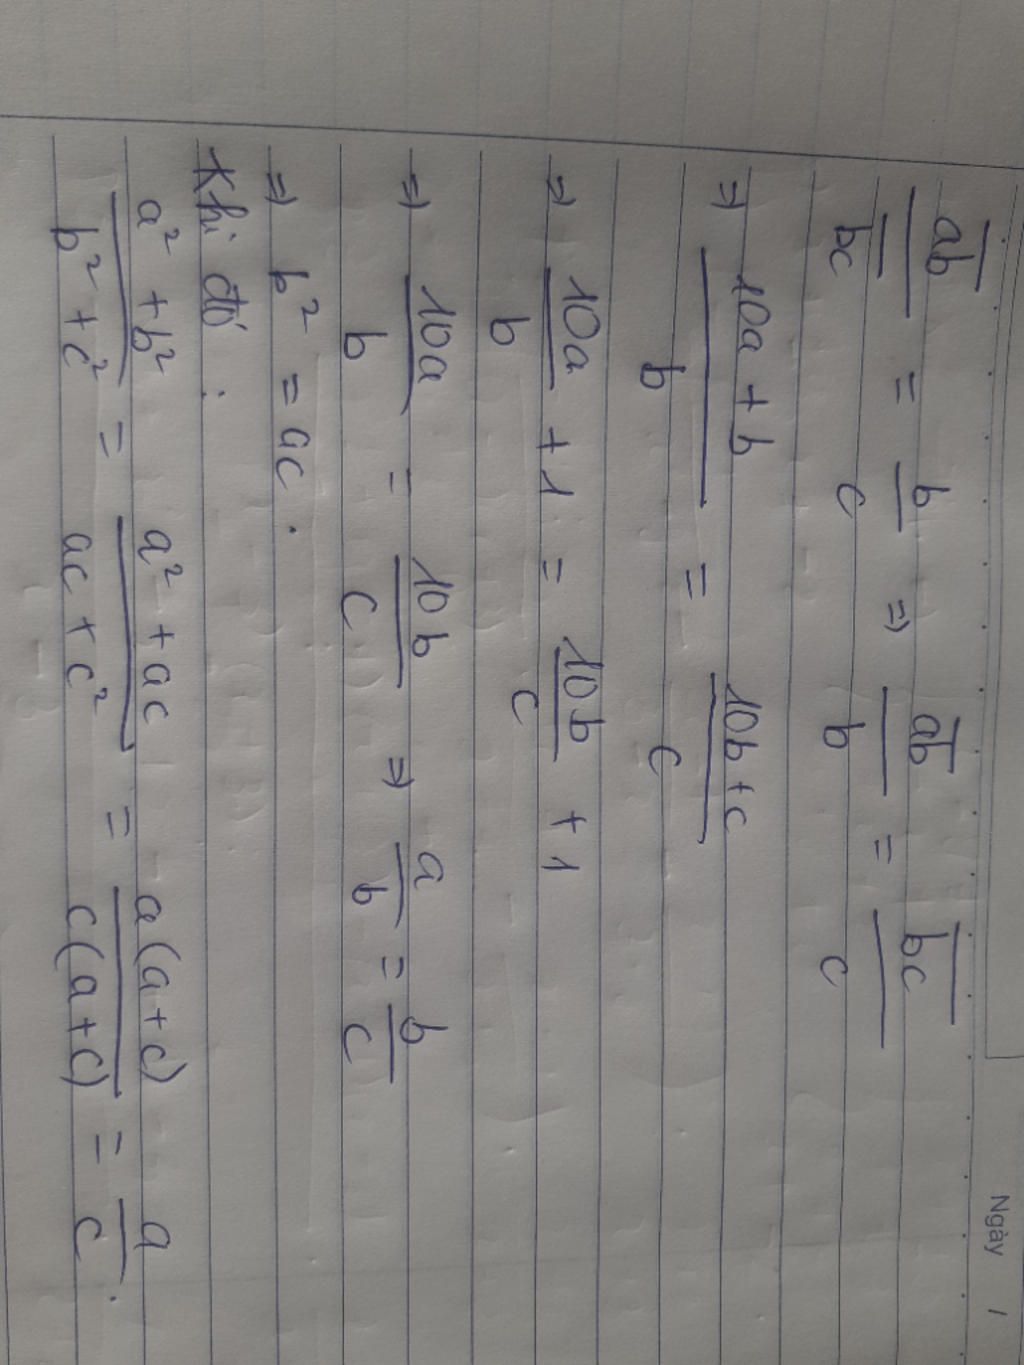 Ngày /
a̅b̅/b̅c̅ = b/c ⇒ a̅b̅/b = b̅c̅/c
⇒ (10a + b)/b = (10b + c)/c
⇒ 10a/b + 1 = 10b/c + 1
⇒ 10a/b = 10b/c ⇒ a/b = b/c
⇒ b² = ac.
Khi đó :
(a² + b²)/(b² + c²) = (a² + ac)/(ac + c²) = a(a+c)/c(a+c) = a/c.